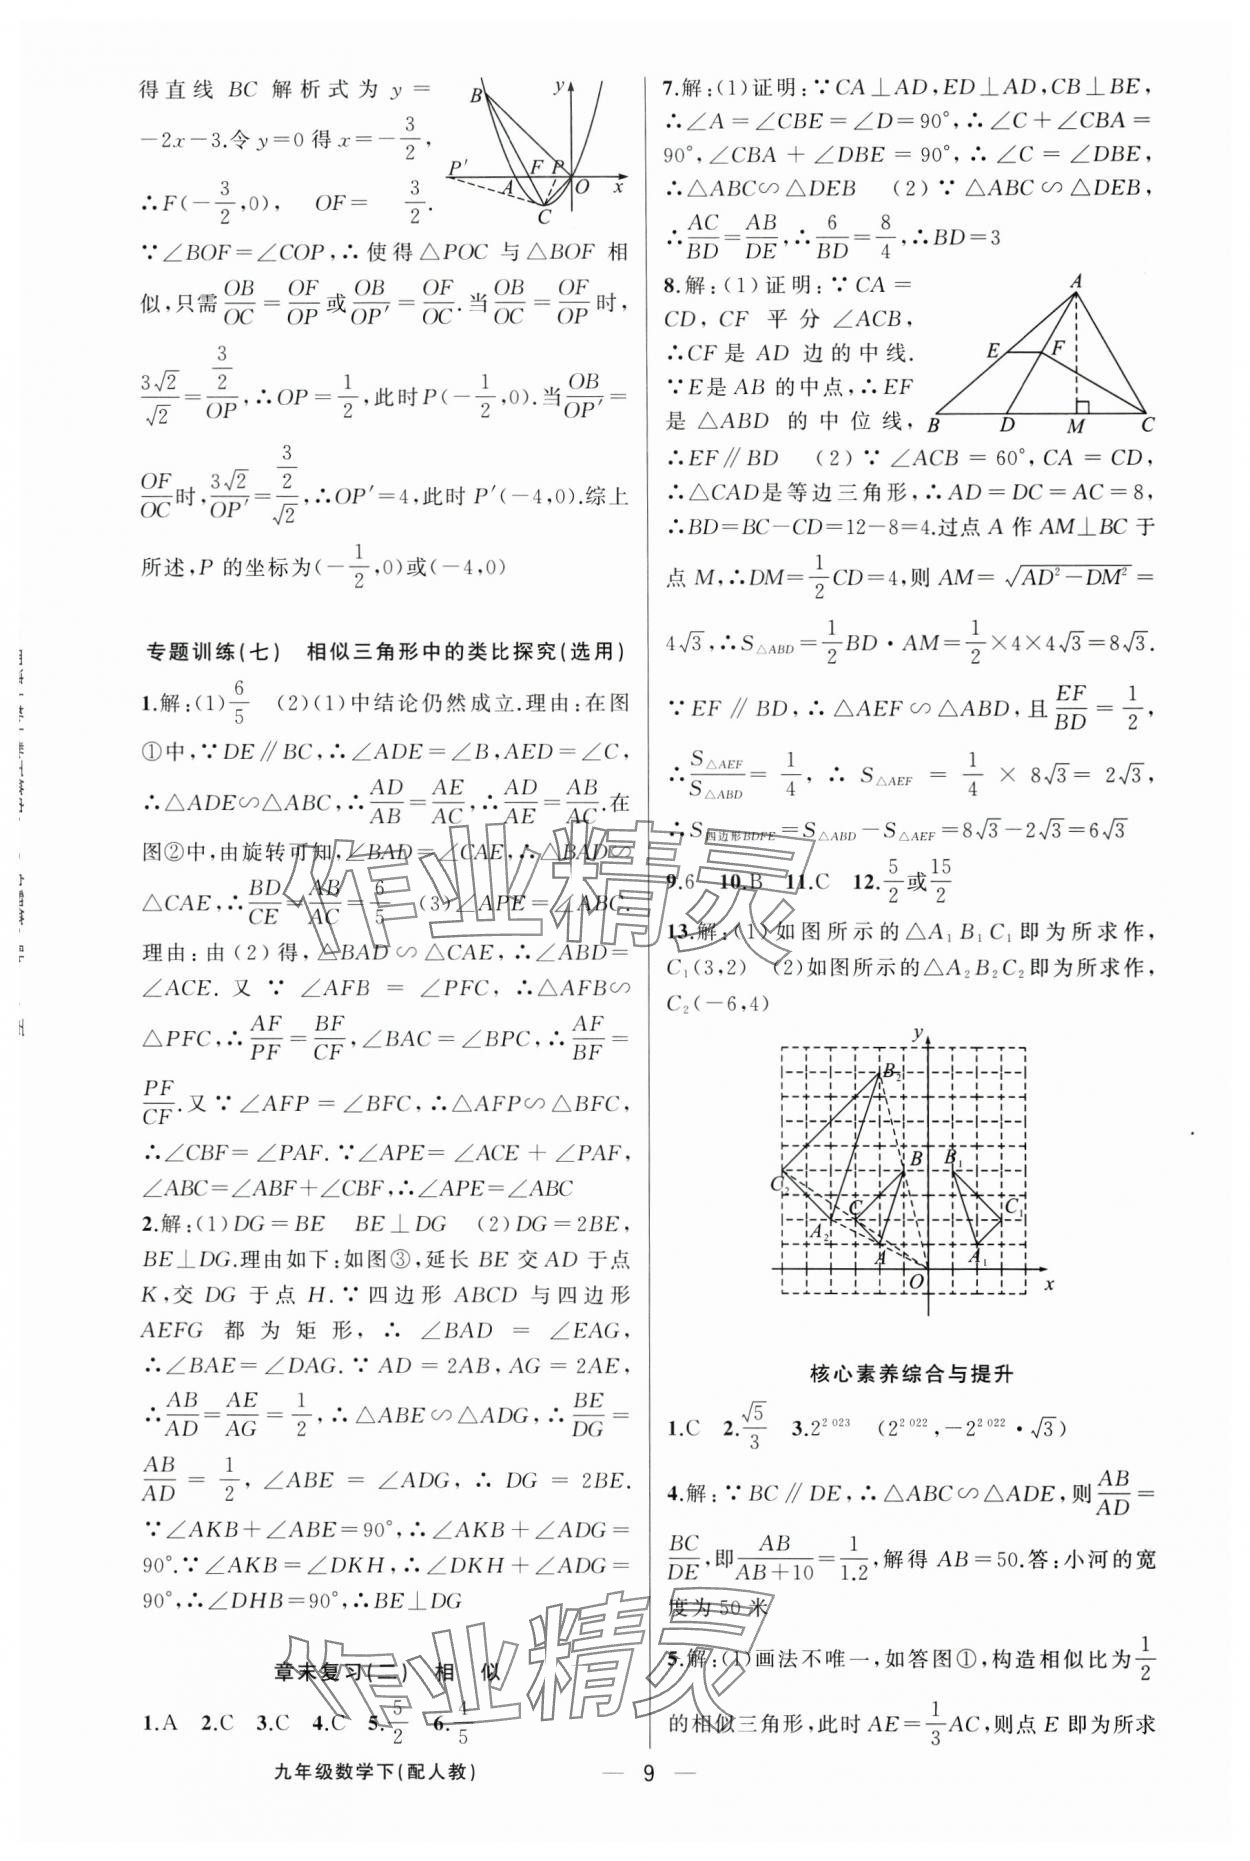 得直线 BC 解析式为 y=
-2x-3.令 y=0 得 x=-3/2,
∴F(-3/2,0), OF= 3/2.
∵∠BOF=∠COP,∴使得△POC 与△BOF 相
似,只需OB/OC=OF/OP或OB/OP′=OF/OC.当OB/OC=OF/OP时,
3√2/√2=(3/2)/OP,∴OP=1/2,此时P(-1/2,0).当OB/OP′=
OF/OC时,3√2/OP′=(3/2)/√2,∴OP′=4,此时 P′(-4,0).综上
所述,P 的坐标为(-1/2,0)或(-4,0)
y
B
P′
A
F
P
O
x
C
专题训练(七) 相似三角形中的类比探究(选用)
1.解:(1)6/5 (2)(1)中结论仍然成立.理由:在图
①中,∵DE∥BC,∴∠ADE=∠B,AED=∠C,
∴△ADE∽△ABC,∴AD/AB=AE/AC,∴AD/AE=AB/AC.在
图②中,由旋转可知,∠BAD=∠CAE,∴△BAD∽
△CAE,∴BD/CE=AB/AC=6/5 (3)∠APE=∠ABC.
理由:由(2)得,△BAD∽△CAE,∴∠ABD=
∠ACE.又∵∠AFB=∠PFC,∴△AFB∽
△PFC,∴AF/PF=BF/CF,∠BAC=∠BPC,∴AF/BF=
PF/CF.又∵∠AFP=∠BFC,∴△AFP∽△BFC,
∴∠CBF=∠PAF.∵∠APE=∠ACE+∠PAF,
∠ABC=∠ABF+∠CBF,∴∠APE=∠ABC
2.解:(1)DG=BE BE⊥DG (2)DG=2BE,
BE⊥DG.理由如下:如图③,延长 BE 交 AD 于点
K,交 DG 于点 H.∵四边形 ABCD 与四边形
AEFG 都为矩形,∴∠BAD=∠EAG,
∴∠BAE=∠DAG.∵AD=2AB,AG=2AE,
∴AB/AD=AE/AG=1/2,∴△ABE∽△ADG,∴BE/DG=
AB/AD=1/2,∠ABE=∠ADG,∴DG=2BE.
∵∠AKB+∠ABE=90°,∴∠AKB+∠ADG=
90°.∵∠AKB=∠DKH,∴∠DKH+∠ADG=
90°,∴∠DHB=90°,∴BE⊥DG
章末复习(二) 相 似
1.A 2.C 3.C 4.C 5.5/2 6.4/5
7.解:(1)证明:∵CA⊥AD,ED⊥AD,CB⊥BE,
∴∠A=∠CBE=∠D=90°,∴∠C+∠CBA=
90°,∠CBA+∠DBE=90°,∴∠C=∠DBE,
∴△ABC∽△DEB (2)∵△ABC∽△DEB,
∴AC/BD=AB/DE,∴6/BD=8/4,∴BD=3
8.解:(1)证明:∵CA=
CD,CF 平分∠ACB,
∴CF是 AD 边的中线.
∵E是AB 的中点,∴EF
是△ABD 的中位线,
∴EF∥BD (2)∵∠ACB=60°,CA=CD,
∴△CAD是等边三角形,∴AD=DC=AC=8,
∴BD=BC-CD=12-8=4.过点 A 作 AM⊥BC 于
点 M,∴DM=1/2CD=4,则 AM=√(AD²-DM²)=
4√3,∴S△ABD=1/2BD·AM=1/2×4×4√3=8√3.
∵EF∥BD,∴△AEF∽△ABD,且EF/BD=1/2,
∴S△AEF/S△ABD=1/4,∴S△AEF=1/4×8√3=2√3,
∴S四边形BDFE=S△ABD-S△AEF=8√3-2√3=6√3
A
E
F
B
D
M
C
9.6 10.B 11.C 12.5/2或15/2
13.解:(1)如图所示的△A₁B₁C₁即为所求作,
C₁(3,2) (2)如图所示的△A₂B₂C₂即为所求作,
C₂(-6,4)
y
B₂
B
B₁
C₂
C
C₁
A₂
A
A₁
O
x
核心素养综合与提升
1.C 2.√5/3 3.2^2 023 (2^2 022,-2^2 022·√3)
4.解:∵BC∥DE,∴△ABC∽△ADE,则AB/AD=
BC/DE,即AB/(AB+10)=1/1.2,解得 AB=50.答:小河的宽
度为50米
5.解:(1)画法不唯一,如答图①,构造相似比为1/2
的相似三角形,此时 AE=1/3AC,则点 E 即为所求
九年级数学下(配人教)
— 9 —
作业精灵
作业精灵